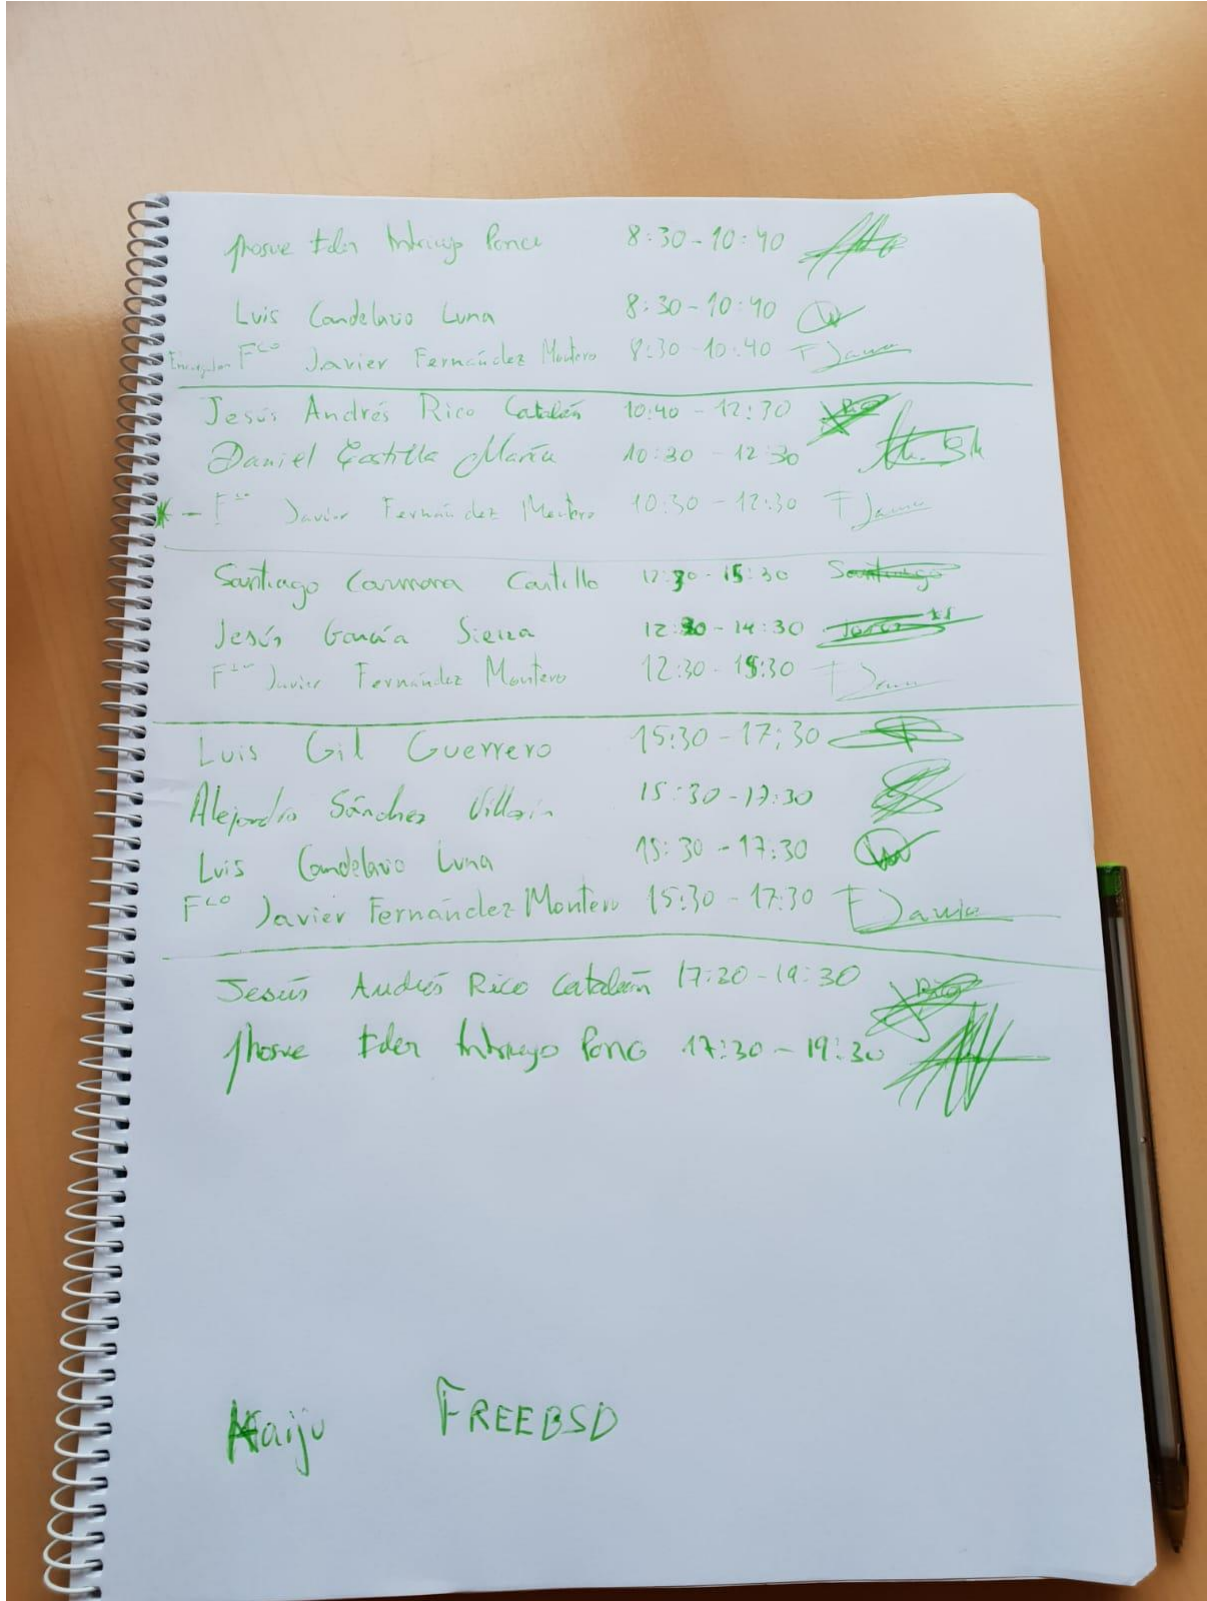 Jhosue Eder Intriago Ponce 8:30-10:40
Luis Candelario Luna 8:30-10:40
Fco Javier Fernández Montero 8:30-10:40 F Javier
Jesús Andrés Rico Catalán 10:40-12:30 Rico
Daniel Castilla María 10:30-12:30
- Fco Javier Fernández Montero 10:30-12:30 F Javier
Santiago Carmona Castillo 12:30-15:30 Santiago
Jesús García Sierra 12:30-14:30
Fco Javier Fernández Montero 12:30-15:30 F Javier
Luis Gil Guerrero 15:30-17:30
Alejandro Sánchez Villarín 15:30-17:30
Luis Candelario Luna 15:30-17:30
Fco Javier Fernández Montero 15:30-17:30 F Javier
Jesús Andrés Rico Catalán 17:20-19:30 Rico
Jhosue Eder Intriago Ponce 17:30-19:30
Kaiju FREEBSD